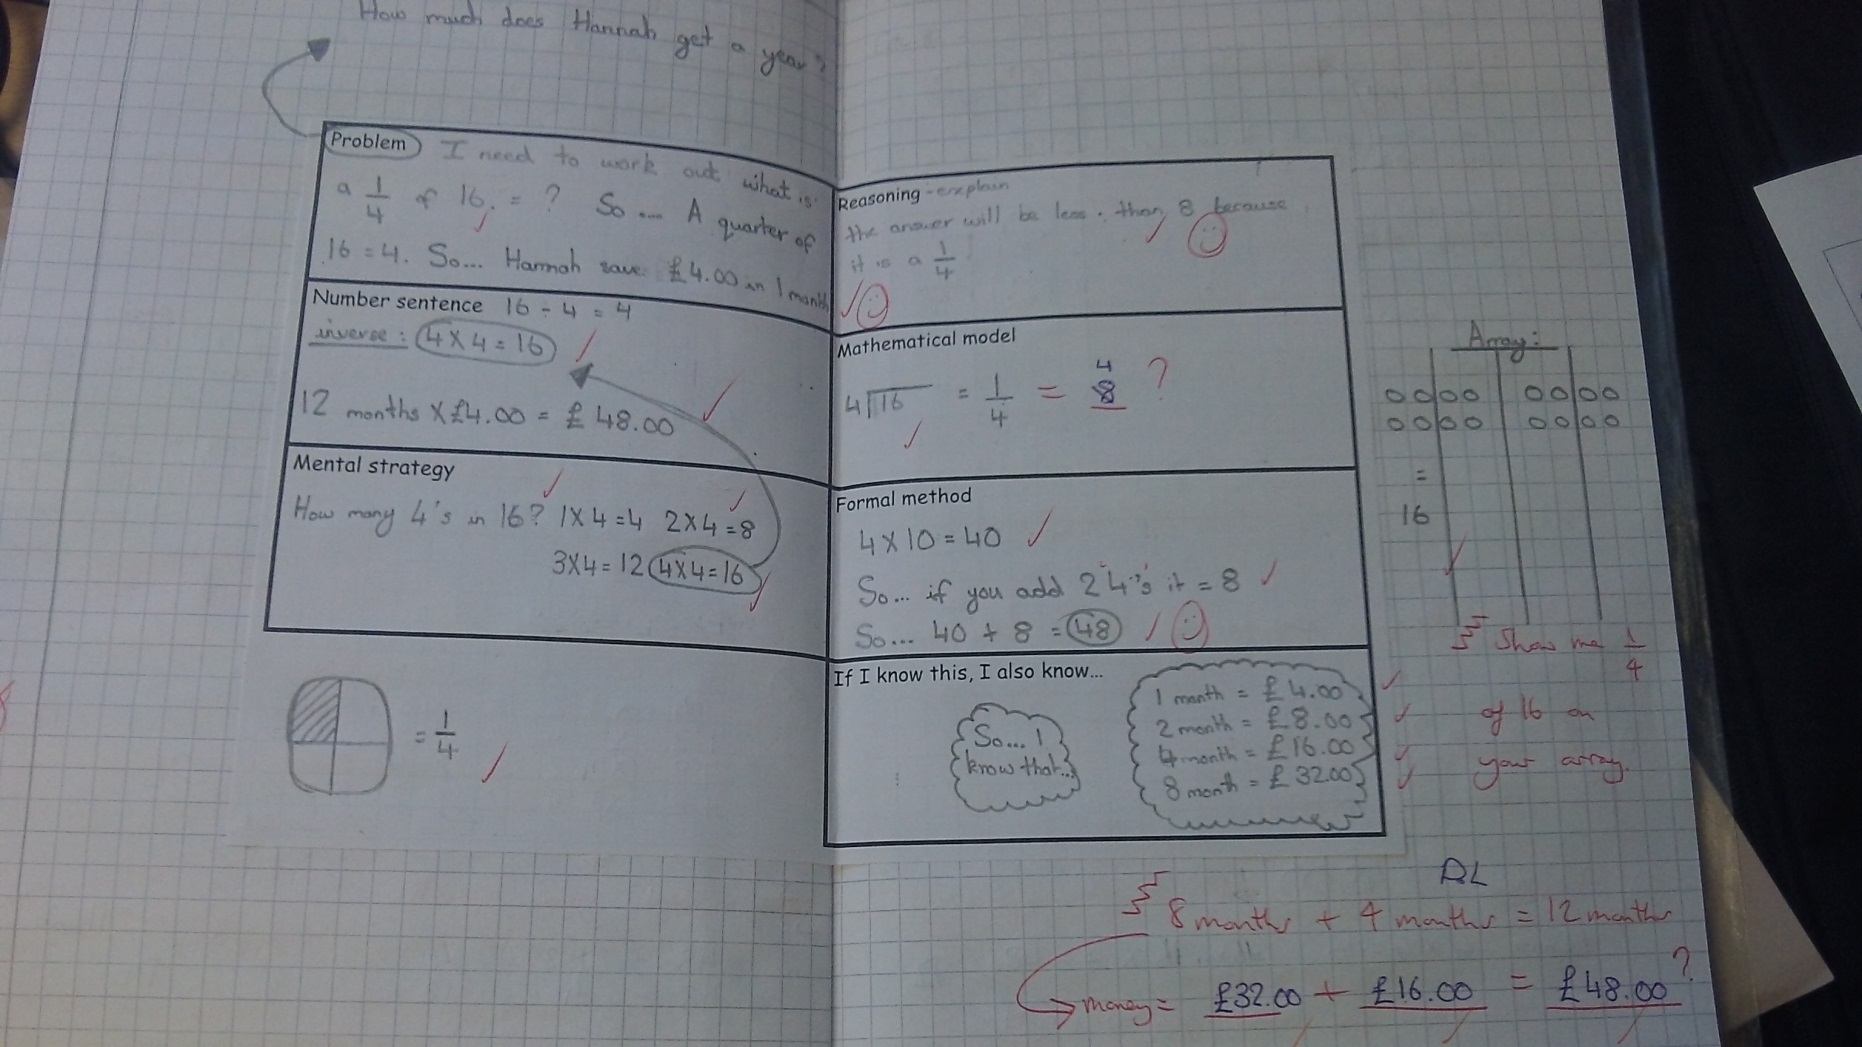 How much does Hannah get a year?
Problem I need to work out what is
a 1/4 of 16. = ? So.... A quarter of
16 = 4. So... Hannah save £4.00 in 1 month
Number sentence 16 ÷ 4 = 4
inverse: 4 X 4 = 16
12 months X £4.00 = £48.00
Mental strategy
How many 4's in 16? 1X4=4 2X4=8
3X4=12 4X4=16
= 1/4
Reasoning - explain
the answer will be less than 8 because
it is a 1/4
Mathematical model
4
4 16 = 1/4 = 8 ?
Formal method
4 X 10 = 40
So... if you add 2 4's it = 8
So... 40 + 8 = 48
If I know this, I also know...
So... I
know that...
1 month = £4.00
2 month = £8.00
4 month = £16.00
8 month = £32.00
Array:
=
16
Show me 1/4
of 16 on
your array.
DL
8 months + 4 months = 12 months
money = £32.00 + £16.00 = £48.00 ?